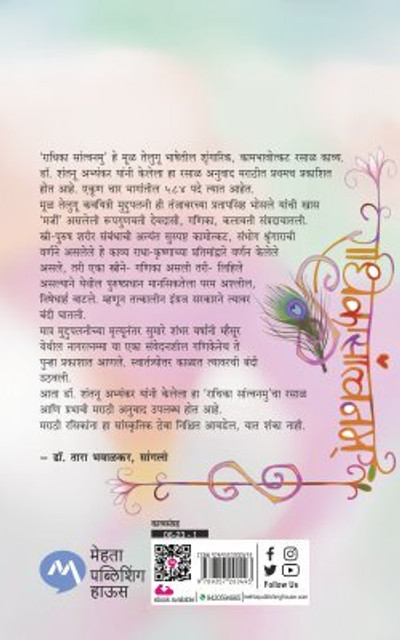 'राधिका सांत्वनमु' हे मूळ तेलुगू भाषेतील शृंगारिक, कामभावोत्कट रसाळ काव्य.
डॉ. शंतनू अभ्यंकर यांनी केलेला हा रसाळ अनुवाद मराठीत प्रथमच प्रकाशित
होत आहे. एकूण चार भागांतील ५८४ पदे त्यात आहेत.
मूळ तेलुगू कवयित्री मुद्दुपलनी ही तंजावरच्या प्रतापसिंह भोसले यांची खास
'मर्जी' असलेली रूपगुणवती देवदासी, गणिका, कलावती संप्रदायातली.
स्त्री-पुरुष शरीर संबंधाची अत्यंत सुस्पष्ट कामोत्कट, संभोग शृंगाराची
वर्णने असलेले हे काव्य राधा-कृष्णाच्या प्रतिमांद्वारे वर्णन केलेले
असले, तरी एका स्त्रीने- गणिका असली तरी- लिहिले
असल्याने येथील पुरुषप्रधान मानसिकतेला परम अश्लील,
निषेधार्ह वाटले. म्हणून तत्कालीन इंग्रज सरकारने त्यावर
बंदी घातली.
मात्र मुद्दुपलनीच्या मृत्यूनंतर सुमारे शंभर वर्षांनी म्हैसूर
येथील नागरत्नम्मा या एका संवेदनशील गणिकेनेच ते
पुन्हा प्रकाशात आणले. स्वातंत्र्योत्तर काळात त्यावरची बंदी
उठवली.
आता डॉ. शंतनू अभ्यंकर यांनी केलेला हा 'राधिका सांत्वनमु'चा रसाळ
आणि प्रभावी मराठी अनुवाद उपलब्ध होत आहे.
मराठी रसिकांना हा सांस्कृतिक ठेवा निश्चित आवडेल, यात शंका नाही.
– डॉ. तारा भवाळकर, सांगली
राधिका सांत्वनमु
काव्यसंग्रह
मेहता
पब्लिशिंग
हाऊस
Follow Us